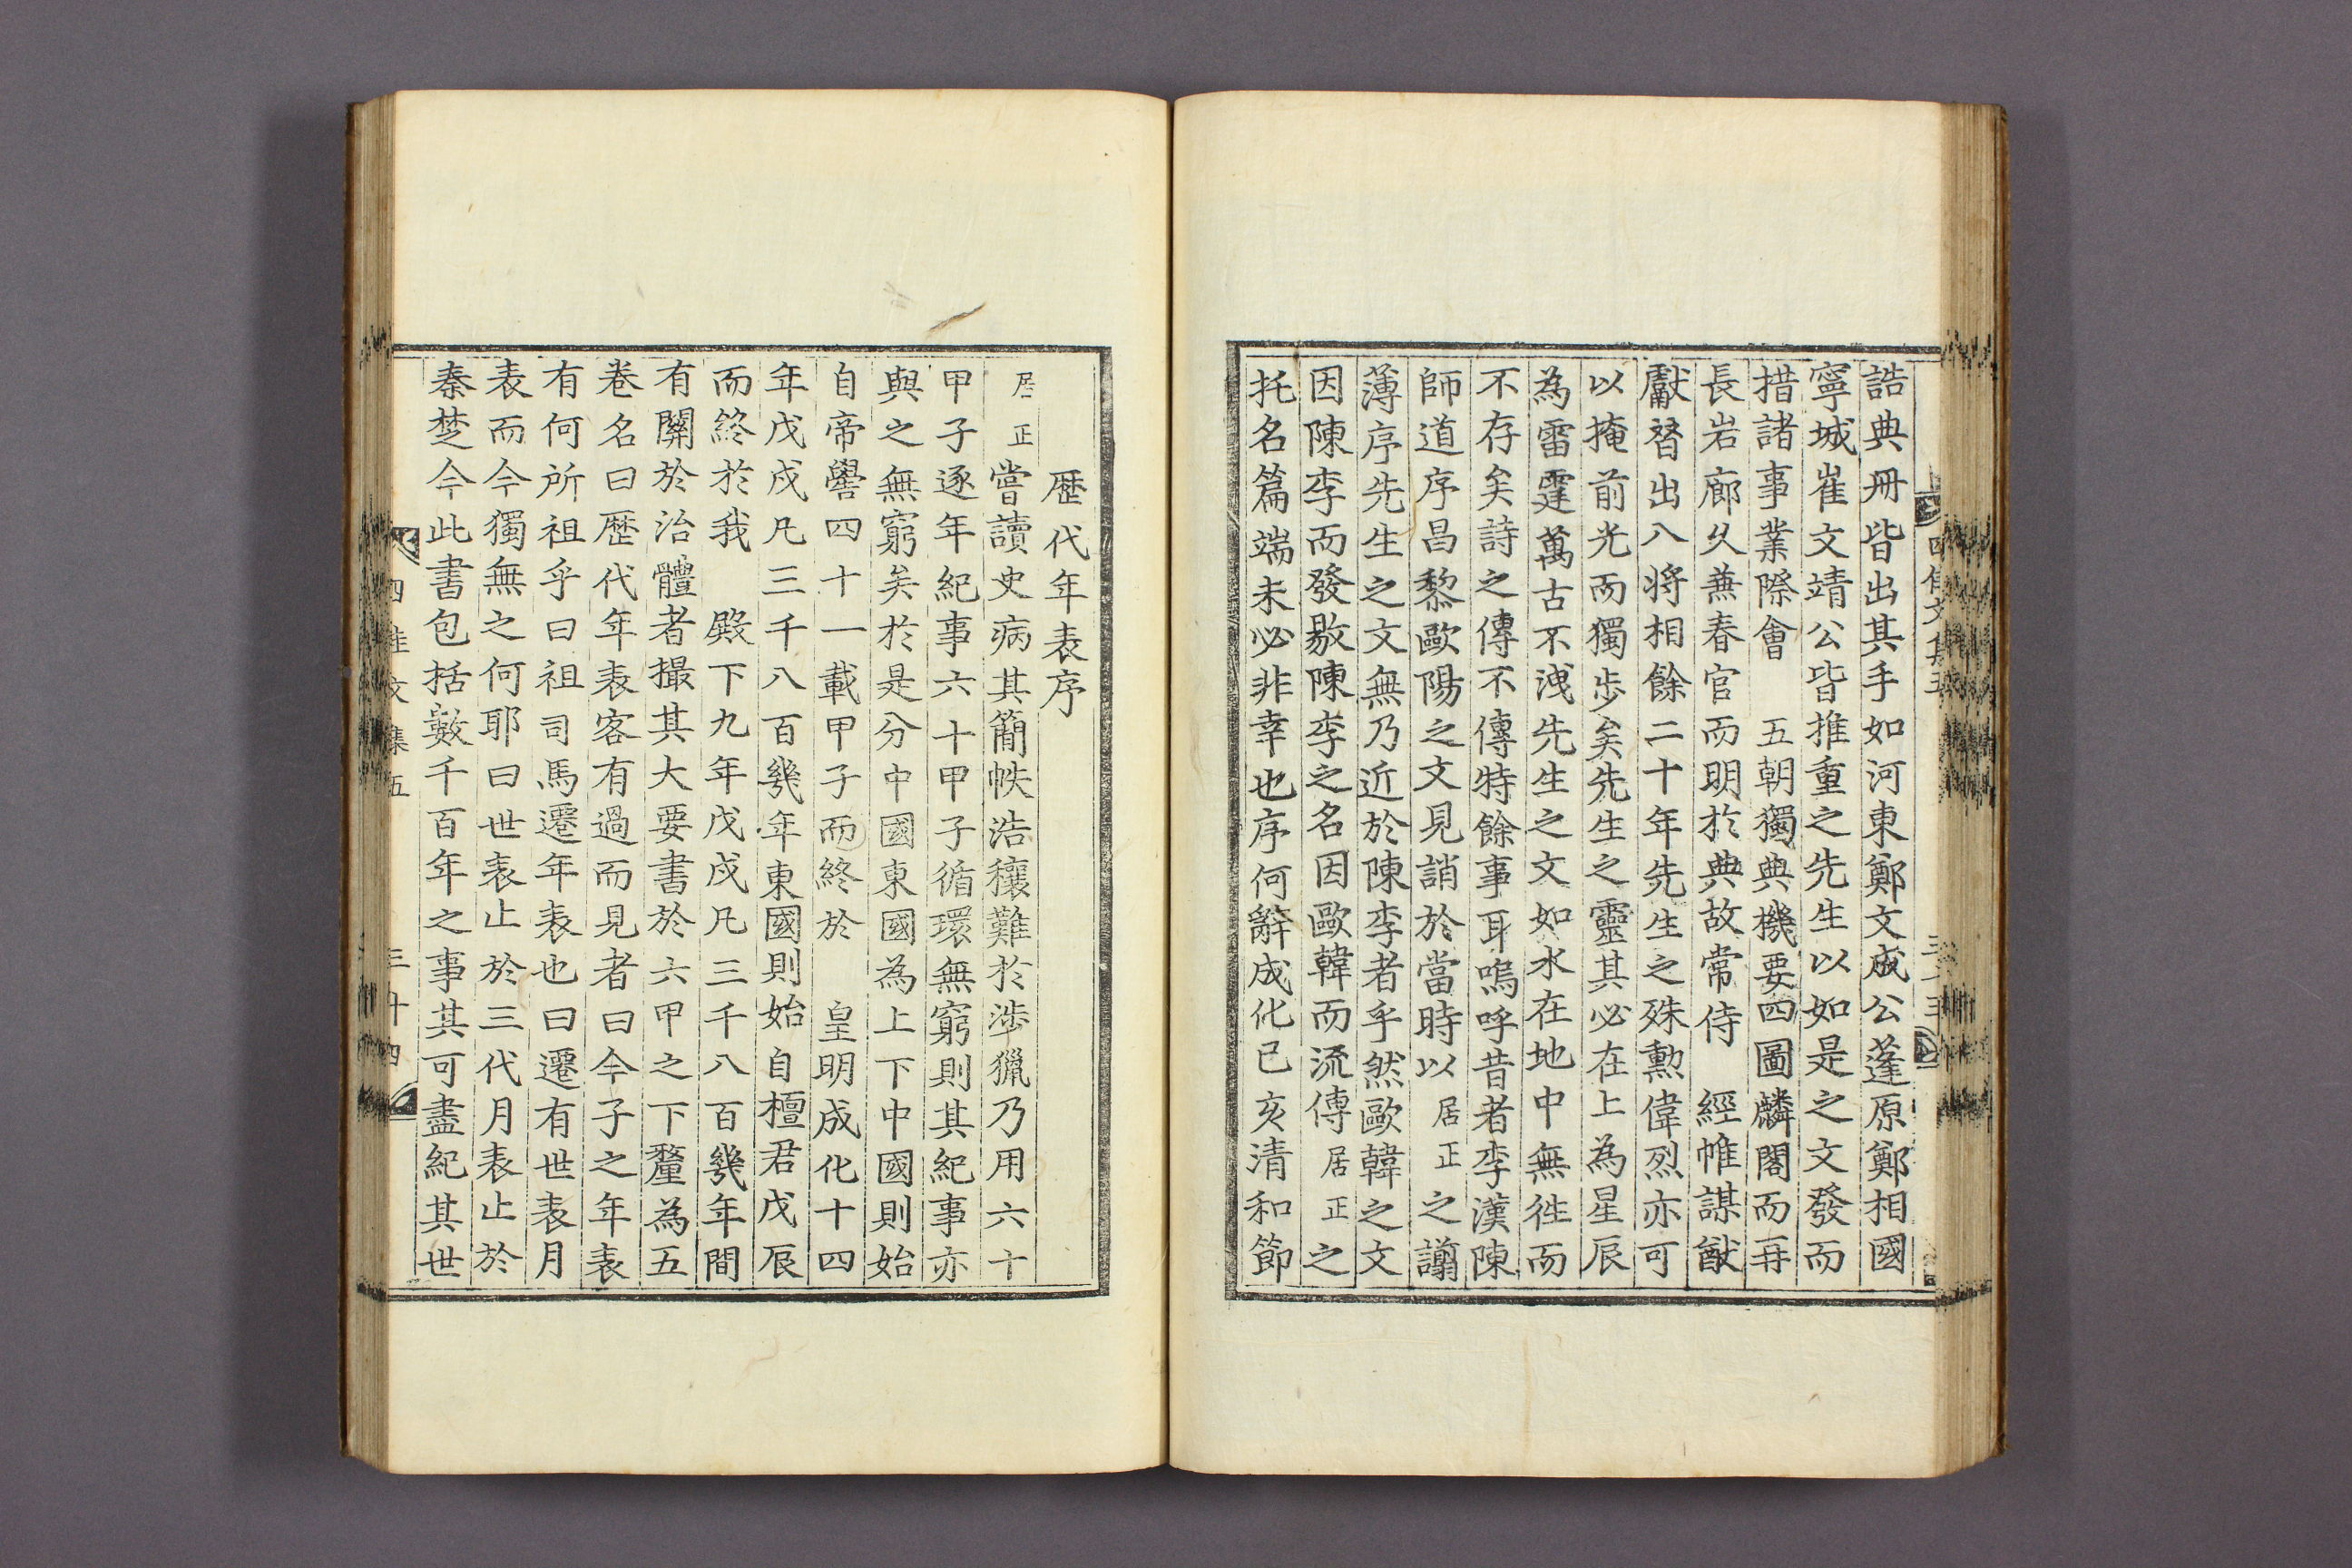 誥典冊皆出其手如河東鄭文成公蓬原鄭相國
寧城崔文靖公皆推重之先生以如是之文發而
措諸事業際會　五朝獨典機要四圖麟閣而再
長岩廊久兼春官而明於典故常侍　經帷謀猷
獻替出入將相餘二十年先生之殊勳偉烈亦可
以掩前光而獨步矣先生之靈其必在上為星辰
為雷霆萬古不洩先生之文如水在地中無徃而
不存矣詩之傳不傳特餘事耳嗚呼昔者李漢陳
師道序昌黎歐陽之文見誚於當時以居正之謭
薄序先生之文無乃近於陳李者乎然歐韓之文
因陳李而發敭陳李之名因歐韓而流傳居正之
托名篇端未必非幸也序何辭成化己亥清和節
歷代年表序
居正嘗讀史病其簡帙浩穰難於涉獵乃用六十
甲子逐年紀事六十甲子循環無窮則其紀事亦
與之無窮矣於是分中國東國為上下中國則始
自帝嚳四十一載甲子而終於　皇明成化十四
年戊戌凡三千八百幾年東國則始自檀君戊辰
而終於我　殿下九年戊戌凡三千八百幾年間
有關於治體者撮其大要書於六甲之下釐為五
卷名曰歷代年表客有過而見者曰今子之年表
有何所祖乎曰祖司馬遷年表也曰遷有世表月
表而今獨無之何耶曰世表止於三代月表止於
秦楚今此書包括數千百年之事其可盡紀其世
四佳文集五
三十四